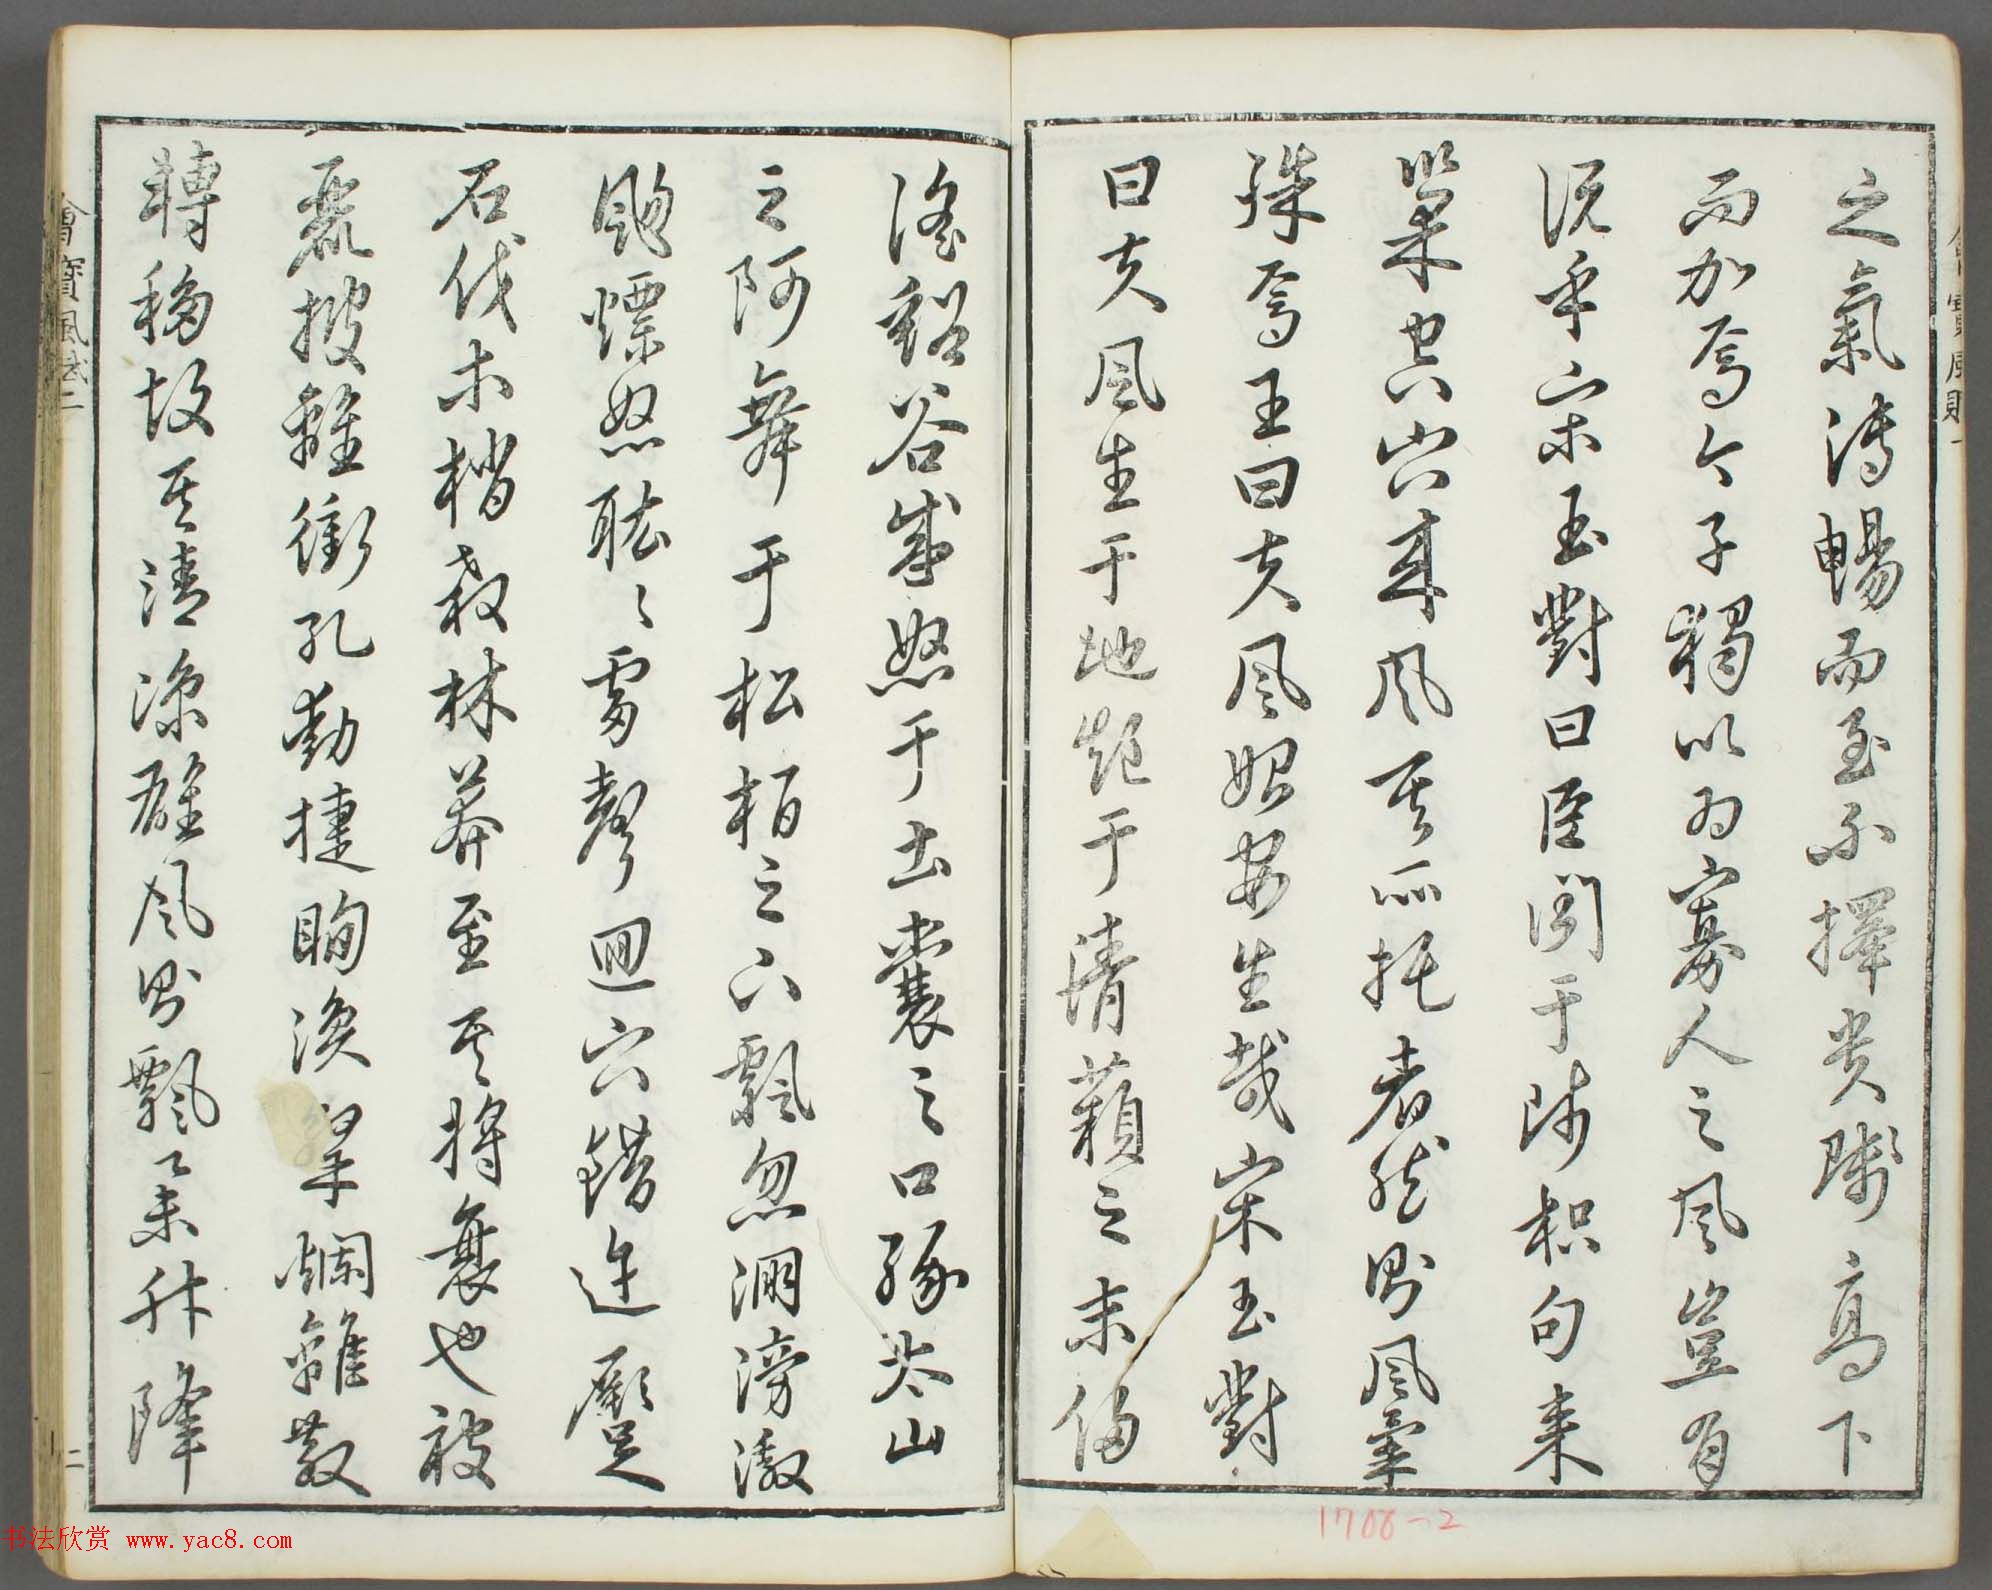 之氣溥暢而至不擇貴賤高下
而加焉今子獨以為寡人之風豈有
說乎宋玉對曰臣聞于師枳句來
巢空穴來風其所托者然則風氣
殊焉王曰夫風始安生哉宋玉對
曰夫風生于地起于青蘋之末侵
淫谿谷盛怒于土囊之口緣泰山
之阿舞于松柏之下飄忽淜滂激
颺熛怒耾〻雷聲迴穴錯迕蹷
石伐木梢殺林莽至其將衰也被
麗披離衝孔動楗眴渙粲爛離散
轉移故其清涼雄風則飄舉升降
會寶風賦 二
二
1708-2
书法欣赏 www.yac8.com